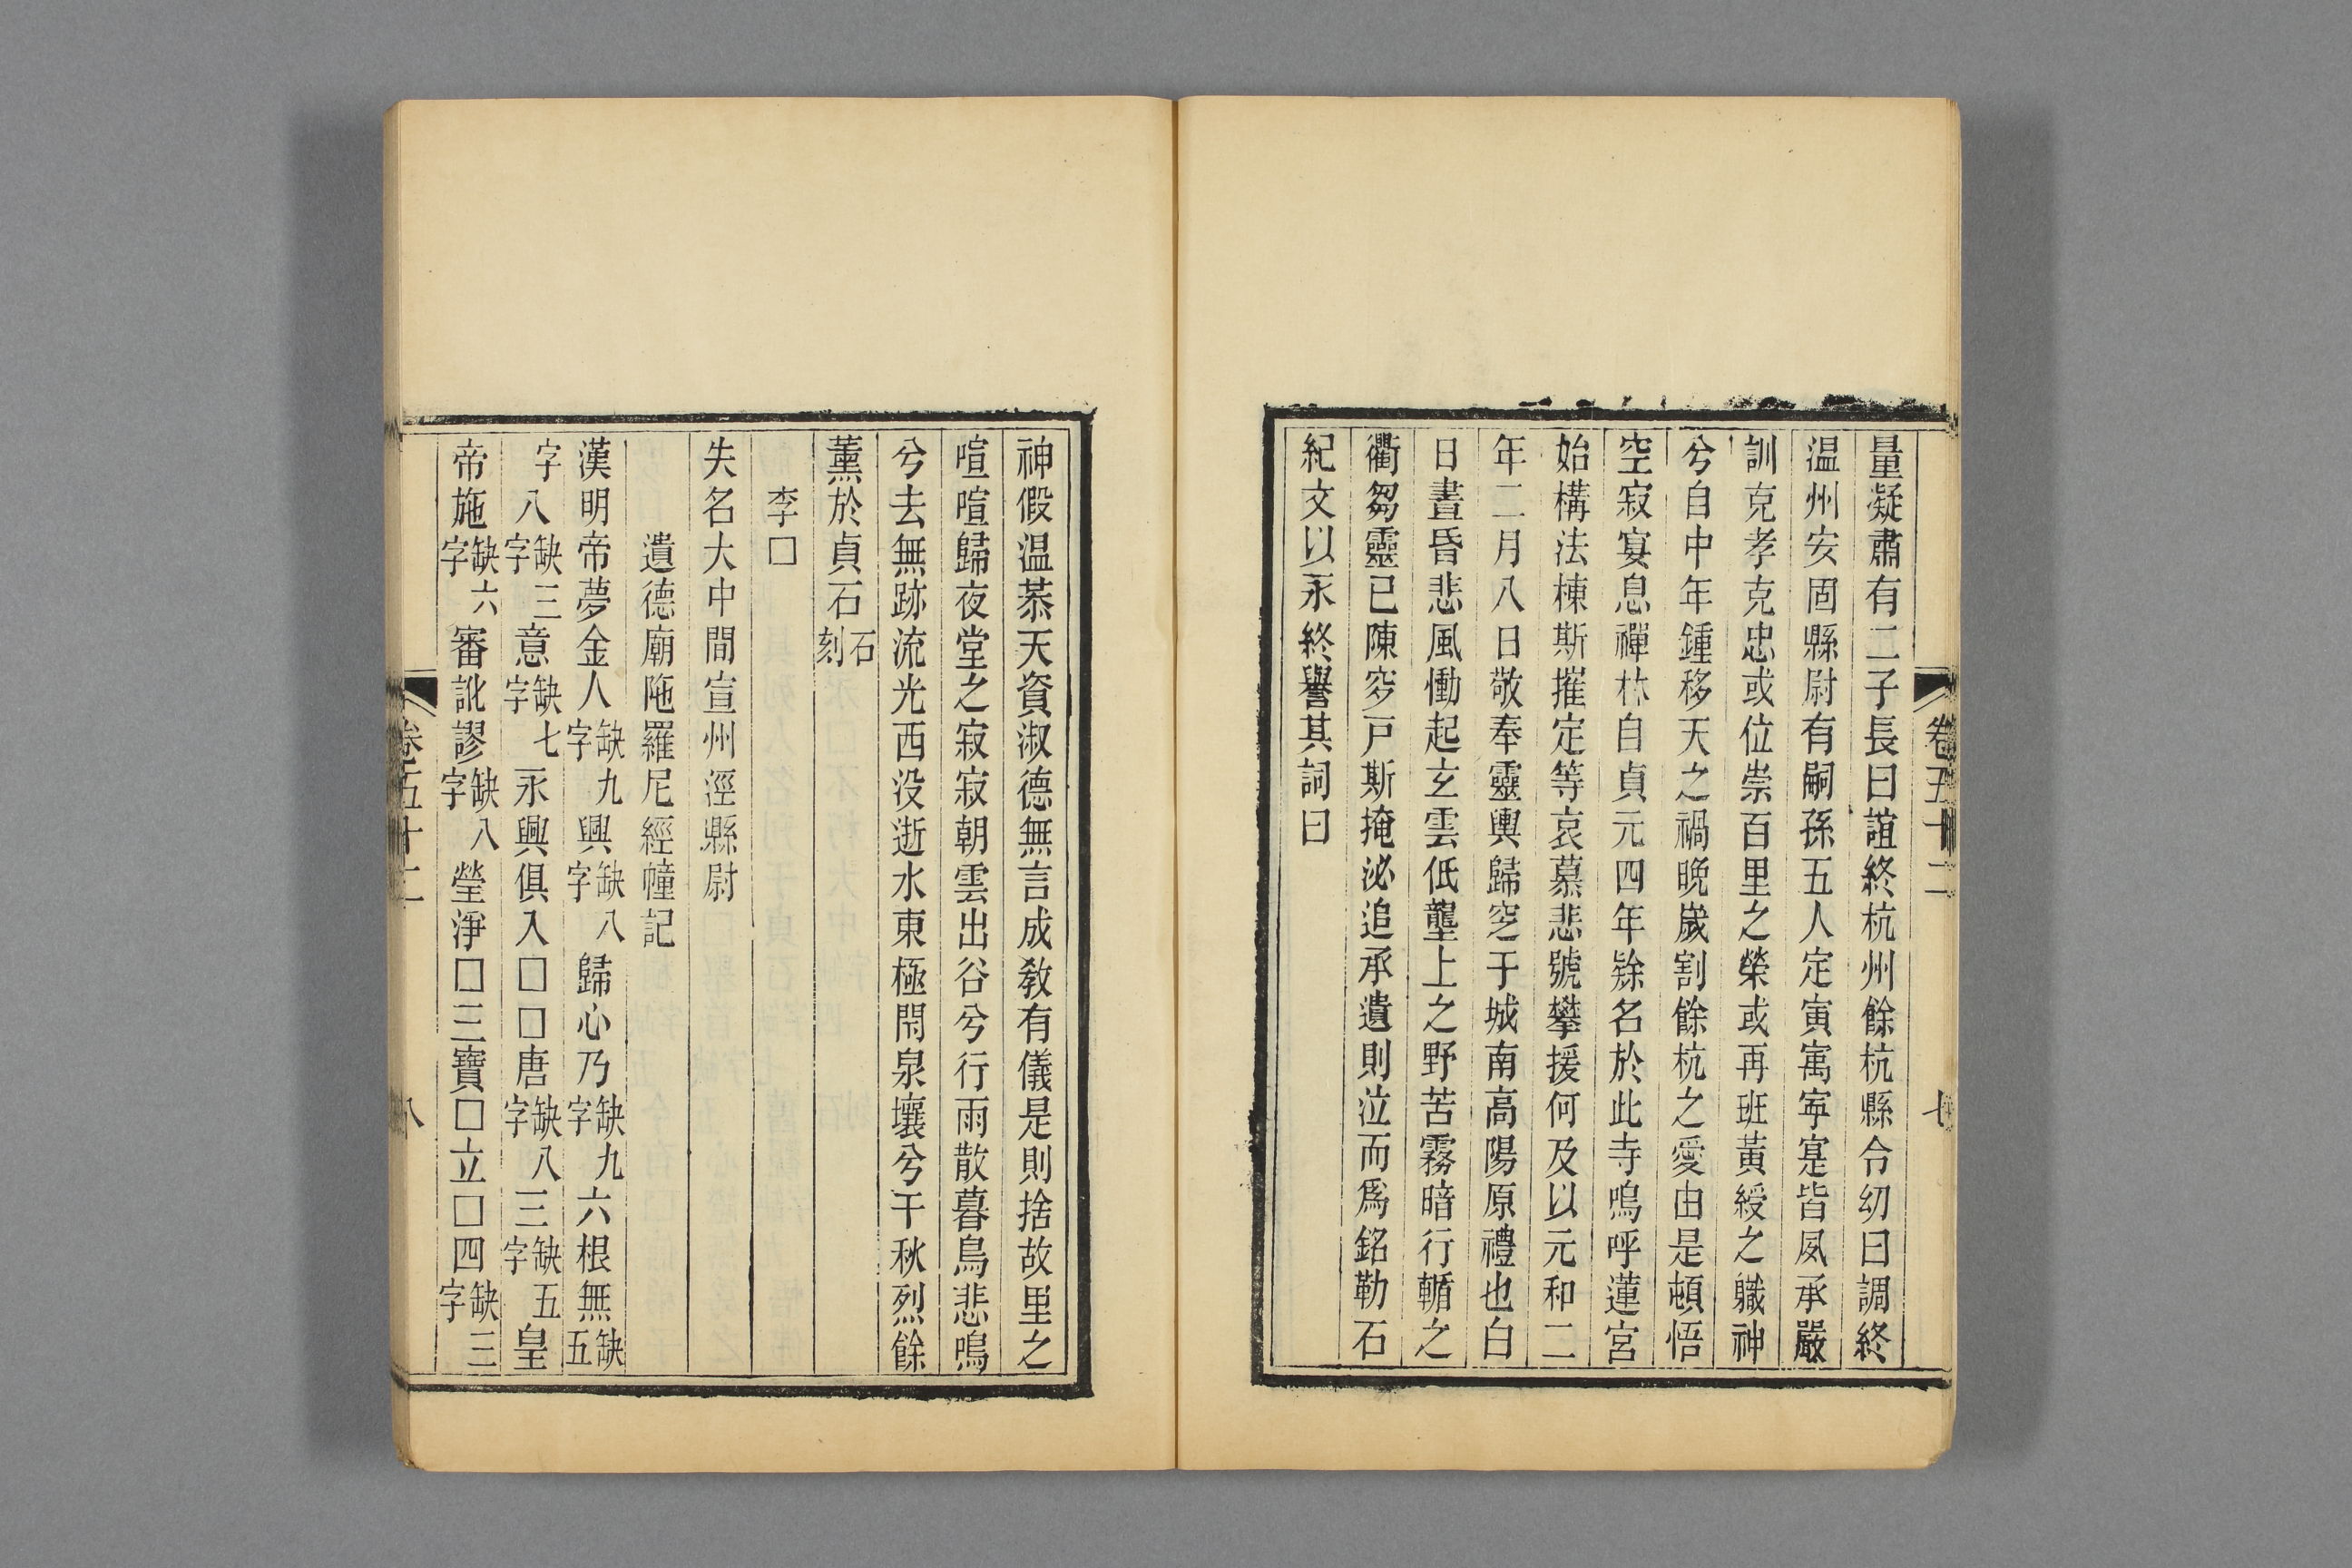 卷五十二
七
量凝肅有二子長曰誼終杭州餘杭縣令幼曰調終
温州安固縣尉有嗣孫五人定寅寓寧寔皆夙承嚴
訓克孝克忠或位崇百里之榮或再班黃綬之軄神
兮自中年鍾移天之禍晚嵗割餘杭之愛由是頓悟
空寂宴息禪林自貞元四年繇名於此寺嗚呼蓮宮
始構法棟斯摧定等哀慕悲號攀援何及以元和二
年二月八日敬奉靈輿歸窆于城南高陽原禮也白
日晝昏悲風慟起玄雲低壟上之野苦霧暗行輴之
衢芻靈已陳穸戸斯掩泌追承遺則泣而爲銘勒石
紀文以永終譽其詞曰
神假温㳟天資淑德無言成教有儀是則捨故里之
喧喧歸夜堂之寂寂朝雲出谷兮行雨散暮鳥悲鳴
兮去無跡流光西没逝水東極閇泉壤兮千秋烈餘
薰於貞石石刻
李□
失名大中間宣州涇縣尉
遺德廟陁羅尼經幢記
漢明帝夢金人缺九字興缺八字歸心乃缺九字六根無缺五
字八缺三字意缺七字永興俱入□□唐缺八字三缺五字皇
帝施缺六字審訛謬缺八字瑩淨□三寶□立□四缺三字
卷五十二
八